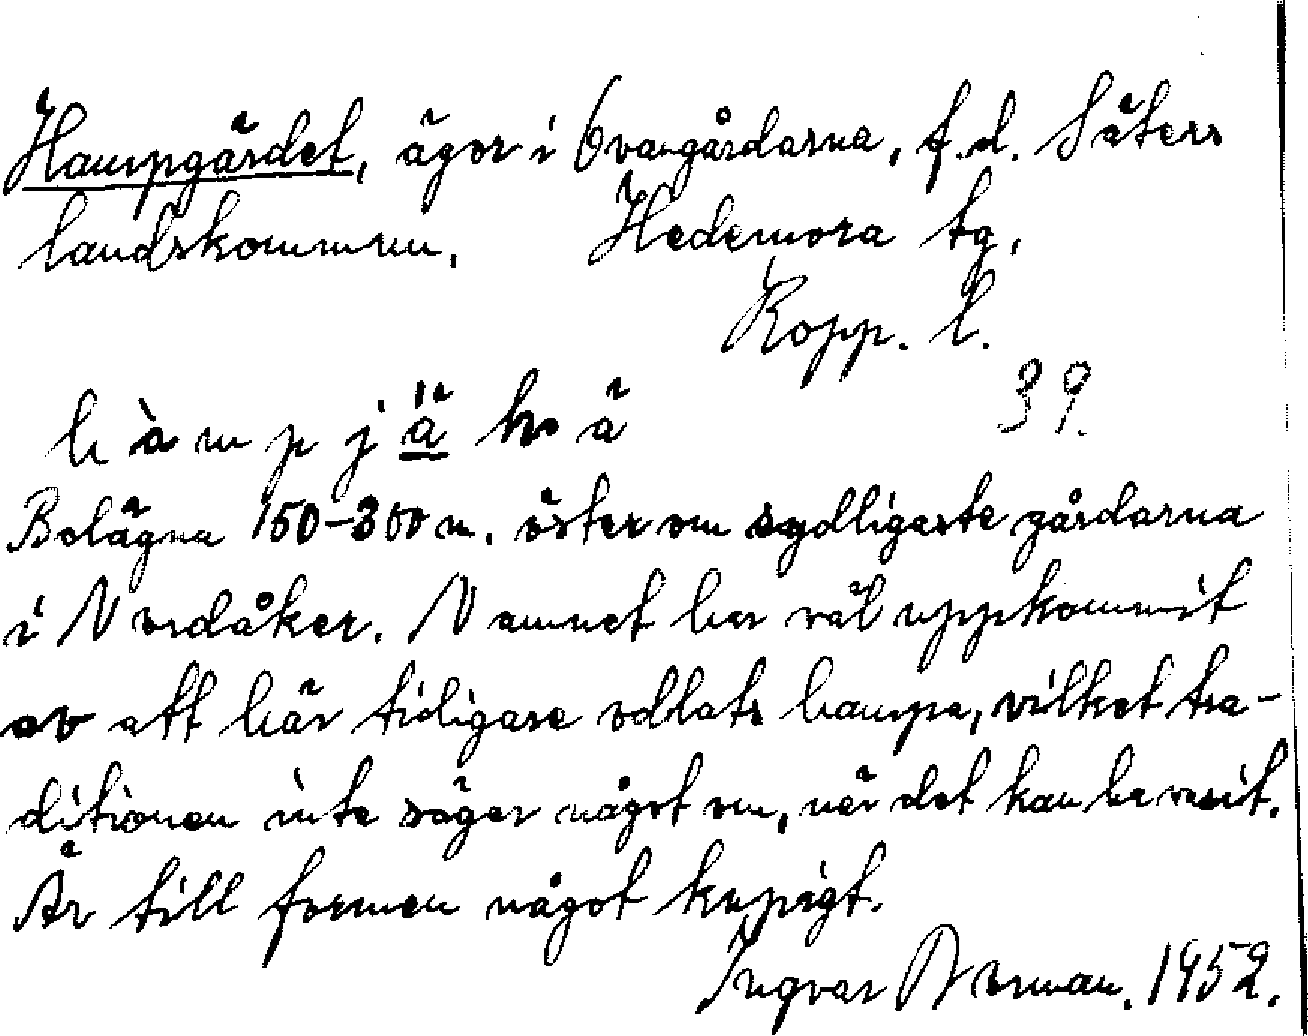 Hampgärdet, ägor i Ovangårdarna, f.d. Säters
landskommun. Hedemora tg,
Kopp. l.
39.
h à m p j ä
Belägna 150-300 m. öster om sydligaste gårdarna
i Nordåker. Namnet har väl uppkommit
av att här tidigare odlats hampa, vilket tra-
ditionen inte säger något om, när det kan ha varit.
Är till formen något kupigt.
Ingvar Norman. 1952.